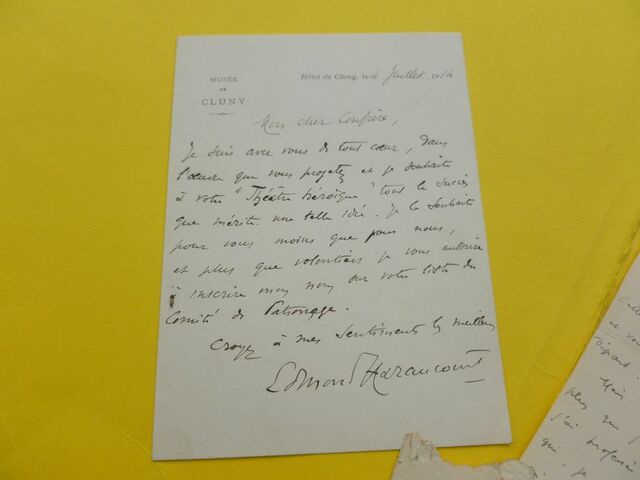 MUSÉE
DE
CLUNY
Hôtel de Cluny, le 4 Juillet 1914
Mon cher Confrère,
Je suis avec vous de tout cœur, dans
l'œuvre que vous projetez et je souhaite
à votre "Théâtre héroïque" tout le succès
que mérite une telle idée. Je le souhaite
pour vous moins que pour nous,
et plus que volontiers je vous autorise
à inscrire mon nom sur votre liste du
Comité de Patronage.
Croyez à mes sentiments les meilleurs
Edmond Haraucourt
et vou
Mais
plus que
j'ai
qui, je